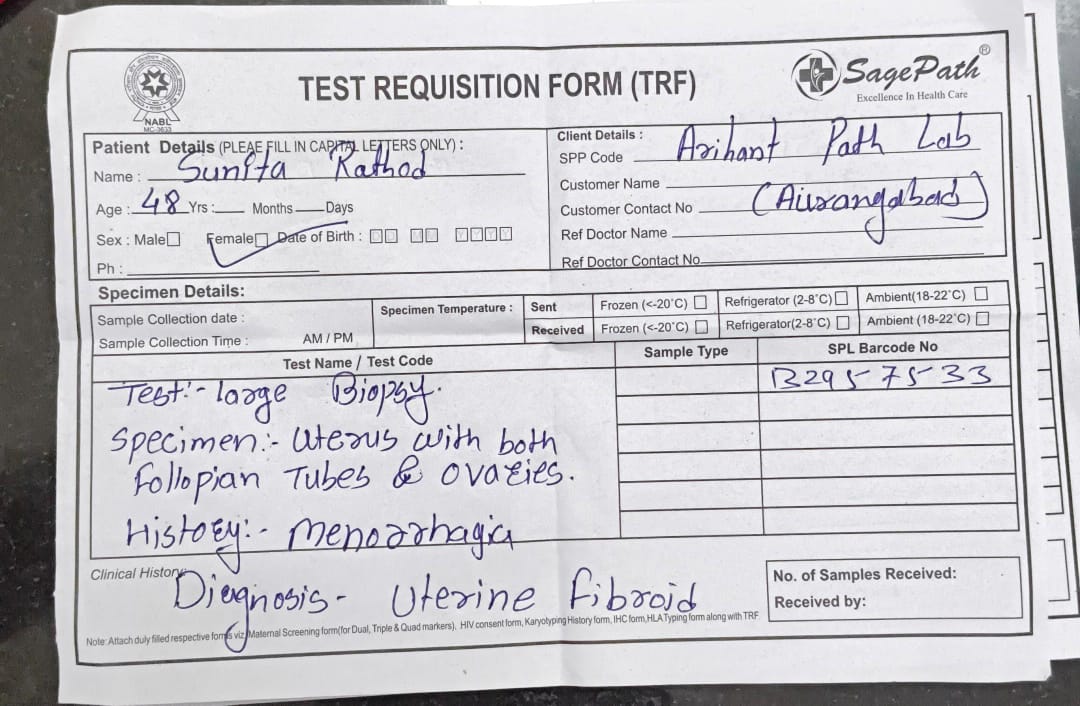 NABL
MC-3633
TEST REQUISITION FORM (TRF)
SagePath®
Excellence In Health Care
Patient Details (PLEAE FILL IN CAPITAL LETTERS ONLY) :
Name : Sunita Rathod
Age : 48 Yrs : Months Days
Sex : Male Female Date of Birth : Y Y Y Y
Ph :
Client Details :
SPP Code Arihant Path Lab
Customer Name
Customer Contact No (Aurangabad)
Ref Doctor Name
Ref Doctor Contact No
Specimen Details:
Sample Collection date :
Sample Collection Time : AM / PM
Specimen Temperature : Sent Frozen (<-20°C) Refrigerator (2-8°C) Ambient(18-22°C)
Received Frozen (<-20°C) Refrigerator(2-8°C) Ambient (18-22°C)
Test Name / Test Code Sample Type SPL Barcode No
Test:- large Biopsy. B2957533
Specimen:- Uterus with both
follopian Tubes & ovaries.
History:- Menorrhagia
Clinical History:
Diagnosis- Uterine fibroid
No. of Samples Received:
Received by:
Note: Attach duly filled respective forms viz Maternal Screening form(for Dual, Triple & Quad markers), HIV consent form, Karyotyping History form, IHC form,HLA Typing form along with TRF